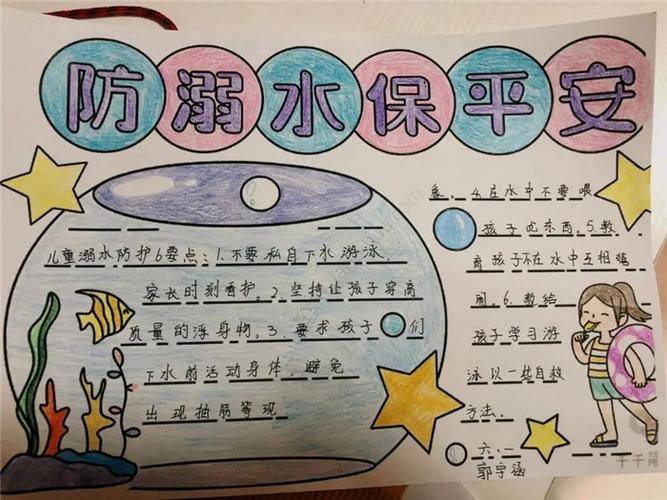 防溺水保平安
儿童溺水防护6要点：1.不要私自下水游泳，
家长时刻看护。2.坚持让孩子穿高
质量的浮身物。3.要求孩子们
下水前活动身体，避免
出现抽筋等现
象。4.在水中不要喂
孩子吃东西。5.教
育孩子不在水中互相嬉
闹。6.教给
孩子学习游
泳以一些自救
方法。
六、二
郭宇涵
千千